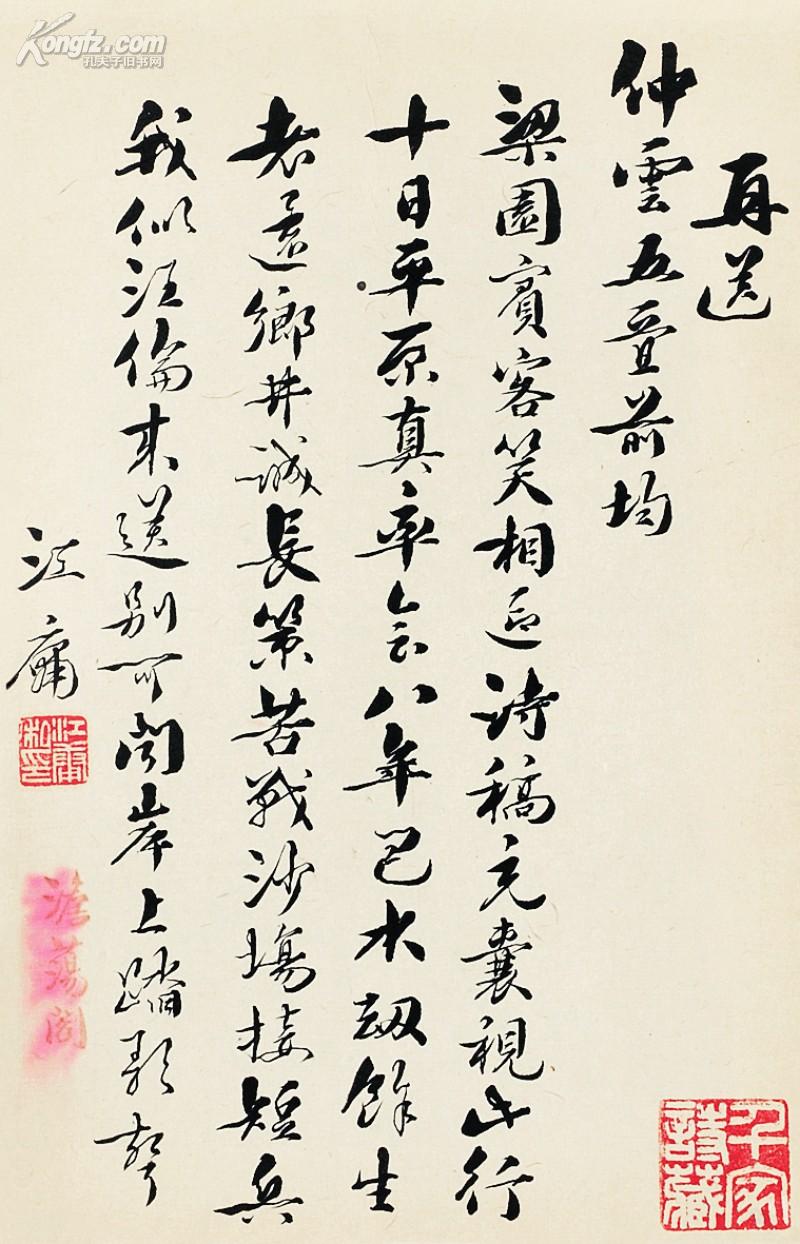 Kongfz.com
孔夫子旧书网
再送
仲雲五疊前均
梁園賓客笑相迎詩稿充囊視此行
十日平原真率會八年巴水刼餘生
老還鄉井誠長策苦戰沙場接短兵
我似汪倫來送別可聞岸上踏歌聲
江庸
江庸私印
澹蕩閣
千家詩藏